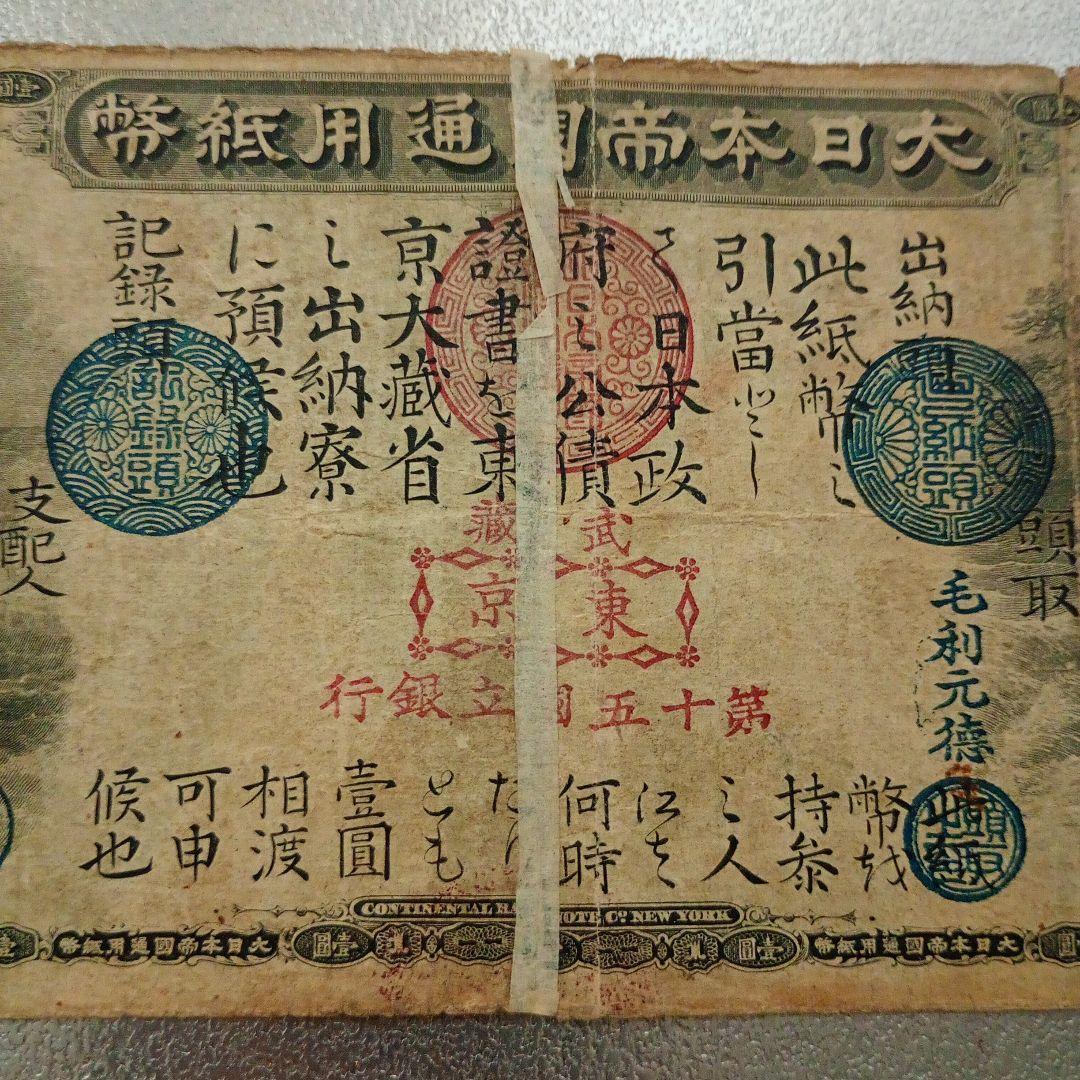 大日本帝國通用紙幣
出納頭
此紙幣之
引當として
日本政
府之公債
證書を東
京大藏省
之出納寮
に預候也
記録頭
出納頭
記録頭
頭取
毛利元德
頭取
支配人
武藏
東京
第十五國立銀行
此紙
幣を
持參
之人
江は
何時
とも
壹圓
相渡
可申
候也
CONTINENTAL BANK NOTE Cº NEW YORK
大日本帝國通用紙幣
壹圓
壹圓
大日本帝國通用紙幣